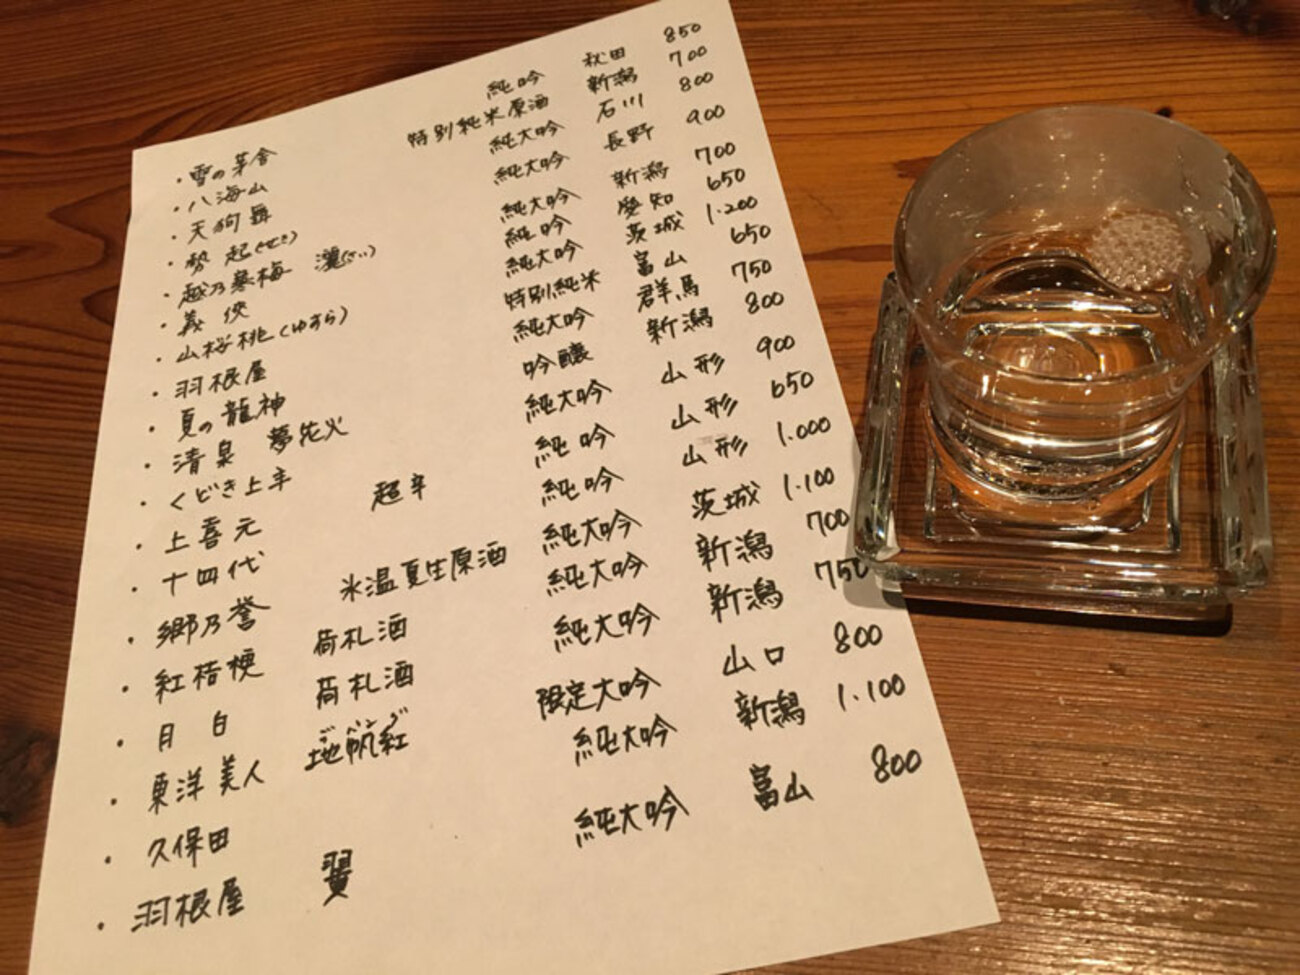 ・雪の茅舎 純吟 秋田 850
・八海山 特別純米原酒 新潟 700
・天狗舞 純大吟 石川 800
・勢起(せき) 純大吟 長野 900
・越乃寒梅 灑(さい) 純大吟 新潟 700
・義侠 純吟 愛知 650
・山桜桃(ゆすら) 純大吟 茨城 1.200
・羽根屋 特別純米 富山 650
・夏の龍神 純大吟 群馬 750
・清泉 夢花火 吟醸 新潟 800
・くどき上手 純大吟 山形 900
・上喜元 超辛 純吟 山形 650
・十四代 純吟 山形 1.000
・郷乃誉 氷温夏生原酒 純大吟 茨城 1.100
・紅桔梗 荷札酒 純大吟 新潟 700
・月白 荷札酒 純大吟 新潟 750
ジパング
・東洋美人 地帆紅 限定大吟 山口 800
・久保田 純大吟 新潟 1.100
・羽根屋 翼 純大吟 富山 800